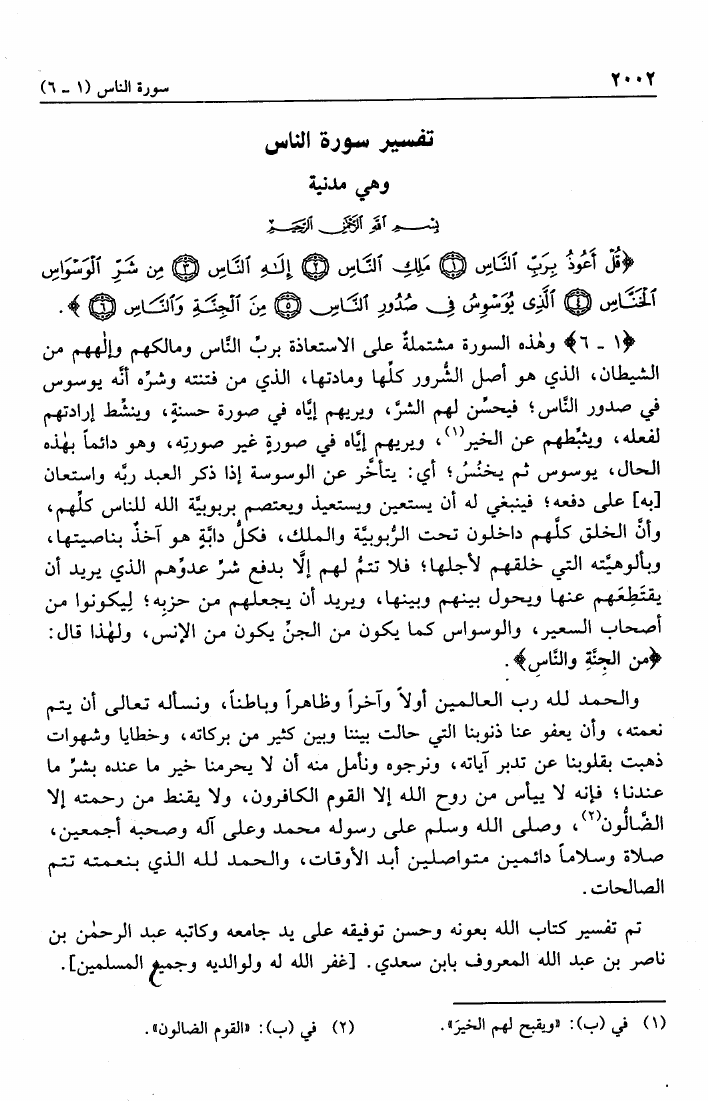 ٢٠٠٢
سورة الناس (١ - ٦)
تفسير سورة الناس
وهي مدنية
بِسْمِ ٱللَّهِ ٱلرَّحْمَٰنِ ٱلرَّحِيمِ
﴿قُلْ أَعُوذُ بِرَبِّ ٱلنَّاسِ ۝١ مَلِكِ ٱلنَّاسِ ۝٢ إِلَٰهِ ٱلنَّاسِ ۝٣ مِن شَرِّ ٱلْوَسْوَاسِ
ٱلْخَنَّاسِ ۝٤ ٱلَّذِى يُوَسْوِسُ فِى صُدُورِ ٱلنَّاسِ ۝٥ مِنَ ٱلْجِنَّةِ وَٱلنَّاسِ ۝٦﴾.
﴿١ - ٦﴾ وهٰذه السورة مشتملةٌ على الاستعاذة بربِّ النَّاس ومالكهم وإلٰههم من
الشيطان، الذي هو أصل الشُّرور كلِّها ومادتها، الذي من فتنته وشرِّه أنَّه يوسوس
في صدور النَّاس؛ فيحسِّن لهم الشرَّ، ويريهم إيَّاه في صورة حسنةٍ، وينشِّط إرادتهم
لفعله، ويثبِّطهم عن الخير(١)، ويريهم إيَّاه في صورةٍ غير صورته، وهو دائماً بهٰذه
الحال، يوسوس ثم يخنُسُ؛ أي: يتأخَّر عن الوسوسة إذا ذكر العبد ربَّه واستعان
[به] على دفعه؛ فينبغي له أن يستعين ويستعيذ ويعتصم بربوبيَّة الله للناس كلِّهم،
وأنَّ الخلق كلَّهم داخلون تحت الرُّبوبيَّة والملك، فكلُّ دابَّةٍ هو آخذٌ بناصيتها،
وبألوهيَّته التي خلقهم لأجلها؛ فلا تتمُّ لهم إلَّا بدفع شرِّ عدوِّهم الذي يريد أن
يقتَطِعَهم عنها ويحول بينهم وبينها، ويريد أن يجعلهم من حزبِه؛ لِيكونوا من
أصحاب السعير، والوسواس كما يكون من الجنِّ يكون من الإنس، ولهٰذا قال:
﴿من الجِنَّةِ والنَّاسِ﴾.
والحمد لله رب العالمين أولاً وآخراً وظاهراً وباطناً، ونسأله تعالى أن يتم
نعمته، وأن يعفو عنا ذنوبنا التي حالت بيننا وبين كثير من بركاته، وخطايا وشهوات
ذهبت بقلوبنا عن تدبر آياته، ونرجوه ونأمل منه أن لا يحرمنا خير ما عنده بشرِّ ما
عندنا؛ فإنه لا ييأس من روح الله إلا القوم الكافرون، ولا يقنط من رحمته إلا
الضَّالُّون(٢)، وصلى الله وسلم على رسوله محمد وعلى آله وصحبه أجمعين،
صلاة وسلاماً دائمين متواصلين أبد الأوقات، والحمد لله الذي بنعمته تتم
الصالحات.
تم تفسير كتاب الله بعونه وحسن توفيقه على يد جامعه وكاتبه عبد الرحمٰن بن
ناصر بن عبد الله المعروف بابن سعدي. [غفر الله له ولوالديه وجميع المسلمين].
(١) في (ب): «ويقبح لهم الخيرَ».
(٢) في (ب): «القوم الضالون».